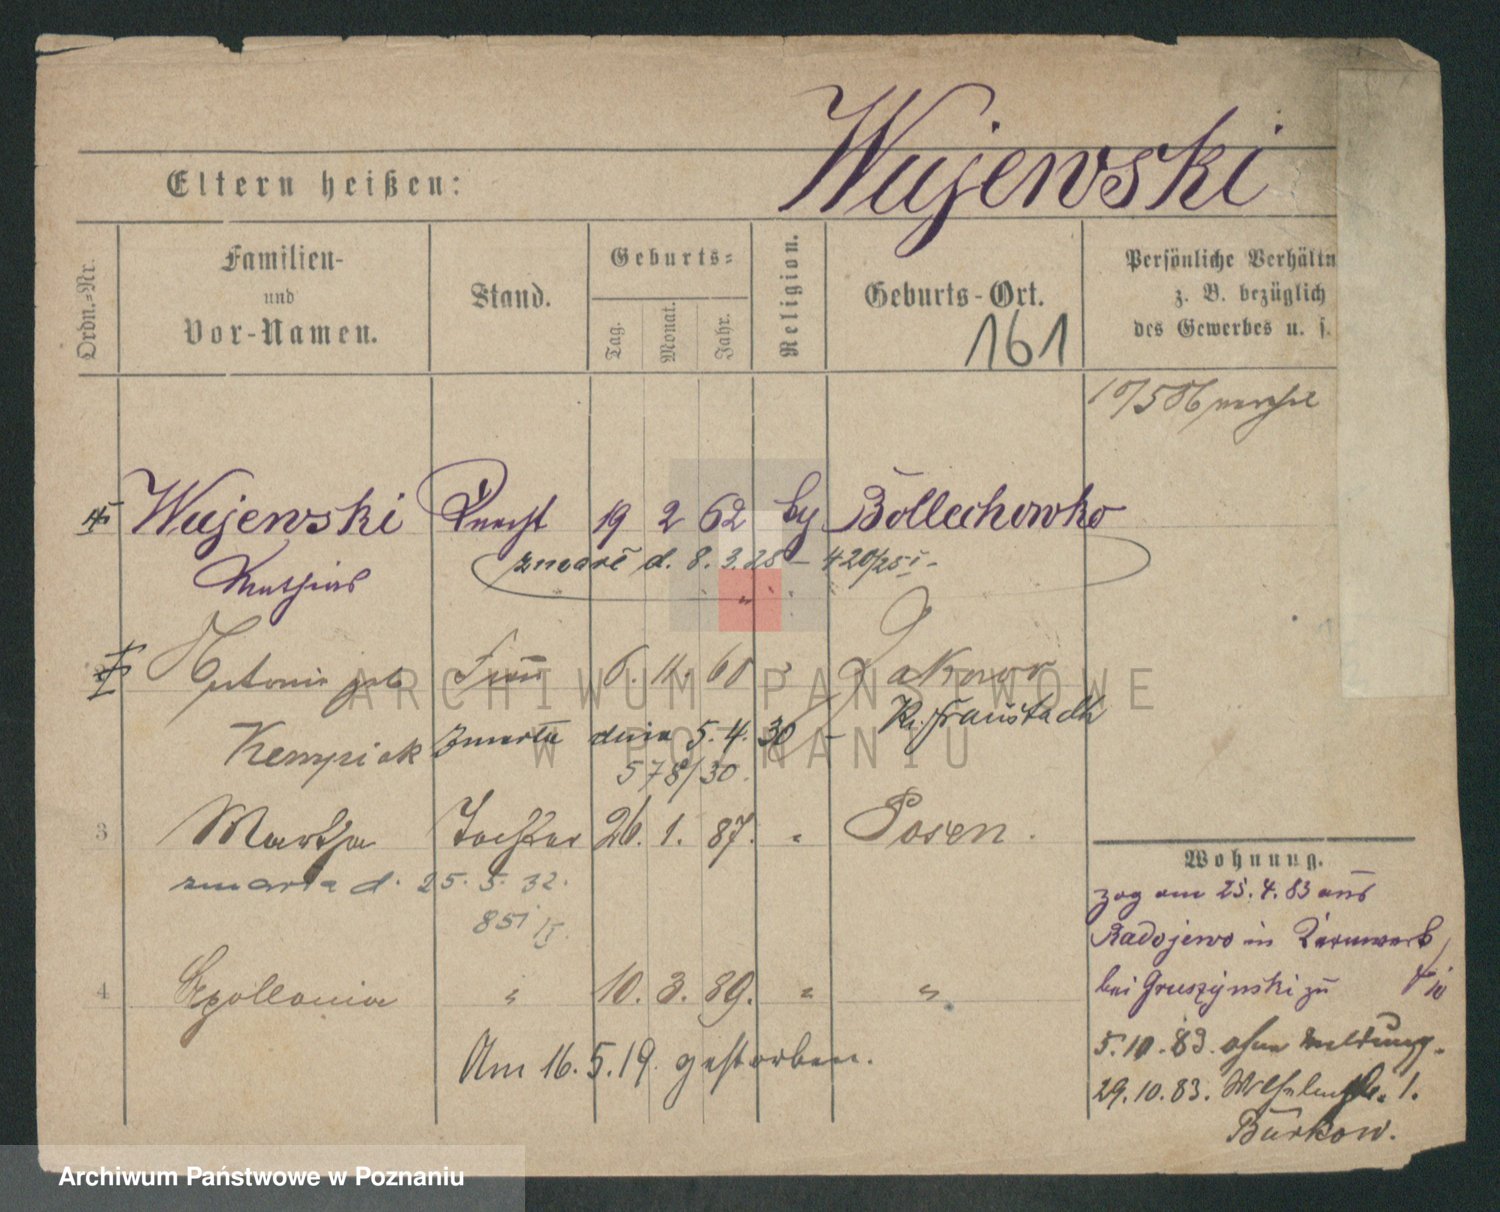 Wujewski
Eltern heißen:
Ordn.=Nr.
Familien-
und
Vor-Namen.
Stand.
Geburts=
Tag.
Monat.
Jahr.
Religion.
Geburts-Ort.
161
Persönliche Verhältn
z. B. bezüglich
des Gewerbes u. s.
Wujewski Knecht 19 2 62 Bollechowko
Mathias
zmarł d. 8. 3. 25 - 420/25
Antonie geb Frau 6. 11. 60 Zakowo
Kr. Fraustadt
Kempiak zmarła dnia 5. 4. 30
578/30.
3 Martha Tochter 26. 1. 87. Posen.
zmarła d. 25. 5. 32.
851
4 Apollonia " 10. 3. 89. " "
Am 16. 5. 19. gestorben.
Wohnung.
zog am 25. 4. 83 aus
Radojewo in
bei Gruszynski zu
5. 10. 83. ohne Meldung.
29. 10. 83. 1.
Burkow.
ARCHIWUM PAŃSTWOWE
W POZNANIU
Archiwum Państwowe w Poznaniu